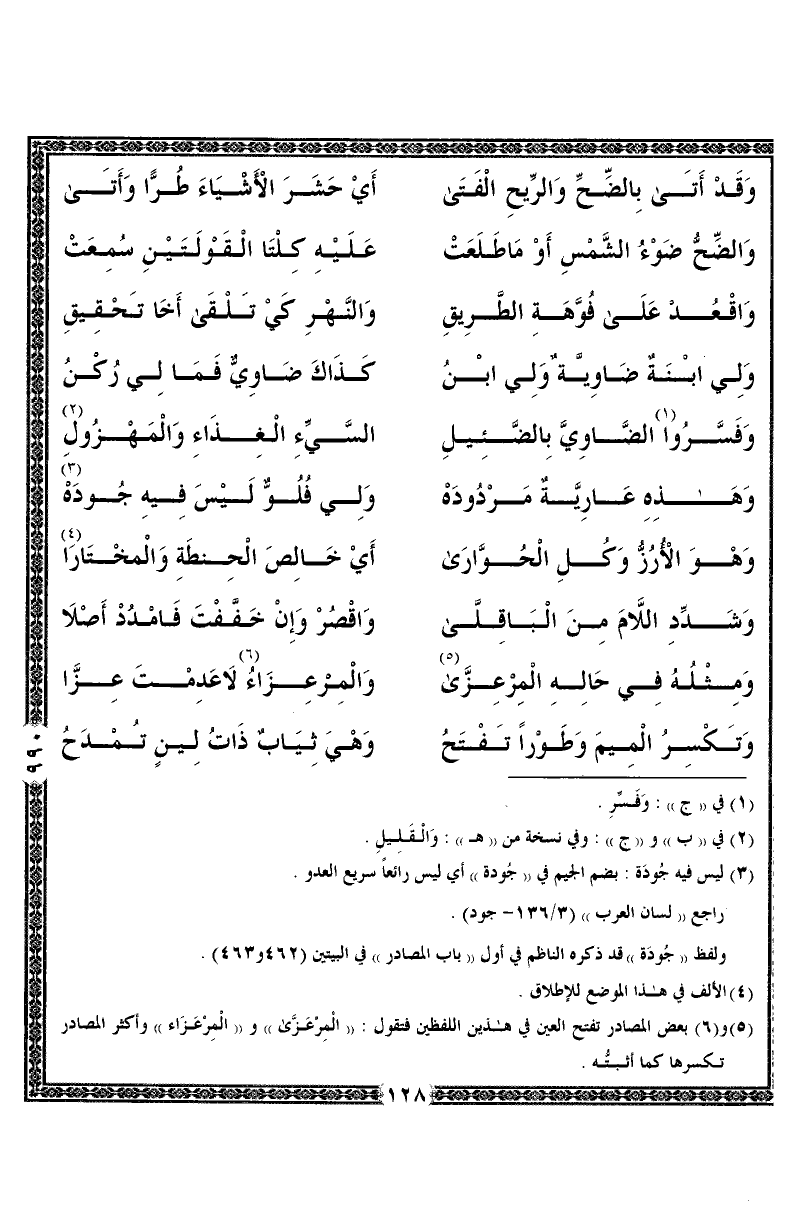 وَقَدْ أَتَىٰ بِالضِّحِّ وَالرِّيحِ الْفَتَىٰ أَيْ حَشَرَ الْأَشْيَاءَ طُرًّا وَأَتَىٰ
وَالضِّحُّ ضَوْءُ الشَّمْسِ أَوْ مَاطَلَعَتْ عَلَيْهِ كِلْتَا الْقَوْلَتَيْنِ سُمِعَتْ
وَاقْعُدْ عَلَىٰ فُوَّهَةِ الطَّرِيقِ وَالنَّهْرِ كَيْ تَلْقَىٰ أَخَا تَحْقِيقِ
وَلِي ابْنَةٌ ضَاوِيَّةٌ وَلِي ابْنُ كَذَاكَ ضَاوِيٌّ فَمَا لِي رُكْنُ
وَفَسَّرُوا (١) الضَّاوِيَّ بِالضَّئِيلِ السَّيِّءِ الْغِذَاءِ وَالْمَهْزُولِ (٢)
وَهَٰذِهِ عَارِيَّةٌ مَرْدُودَهْ وَلِي فُلُوٌّ لَيْسَ فِيهِ جُودَهْ (٣)
وَهْوَ الْأُرُزُّ وَكُلِ الْحُوَّارَىٰ أَيْ خَالِصَ الْحِنطَةِ وَالْمُخْتَارَا (٤)
وَشَدِّدِ اللَّامَ مِنَ الْبَاقِلَّىٰ وَاقْصُرْ وَإِنْ خَفَّفْتَ فَامْدُدْ أَصْلَا
وَمِثْلُهُ فِي حَالِهِ الْمِرْعِزَّىٰ (٥) وَالْمِرْعِزَاءُ (٦) لَاعَدِمْتَ عِزَّا
وَتَكْسِرُ الْمِيمَ وَطَوْراً تَفْتَحُ وَهْيَ ثِيَابٌ ذَاتُ لِينٍ تُمْدَحُ
٩٩٠
(١) في « ج » : وَفَسِّرِ .
(٢) في « ب » و « ج » : وفي نسخة من « هـ » : وَالْقَلِيلِ .
(٣) ليس فيه جُودَة : بضم الجيم في « جُودة » أي ليس رائعاً سريع العدو .
راجع « لسان العرب » (١٣٦/٣- جود) .
ولفظ « جُودَة » قد ذكره الناظم في أول « باب المصادر » في البيتين (٤٦٢و٤٦٣) .
(٤) الألف في هـٰذا الموضع للإطلاق .
(٥)و(٦) بعض المصادر تفتح العين في هـٰذين اللفظين فتقول : « الْمِرْعَزَّىٰ » و « الْمِرْعَزَاء » وأكثر المصادر
تكسرها كما أثبتُّه .
١٢٨